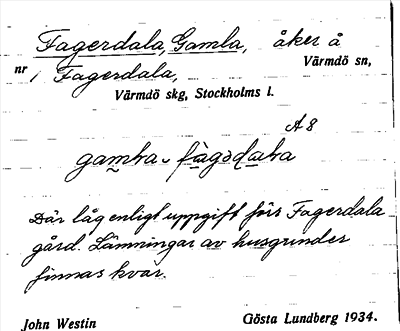 Fagerdala, Gamla, åker å
nr 1 Fagerdala, Värmdö sn,
Värmdö skg, Stockholms l.
A 8
Där låg enligt uppgift förs Fagerdala
gård. Lämningar av husgrunder
finnas kvar.
John Westin Gösta Lundberg 1934.